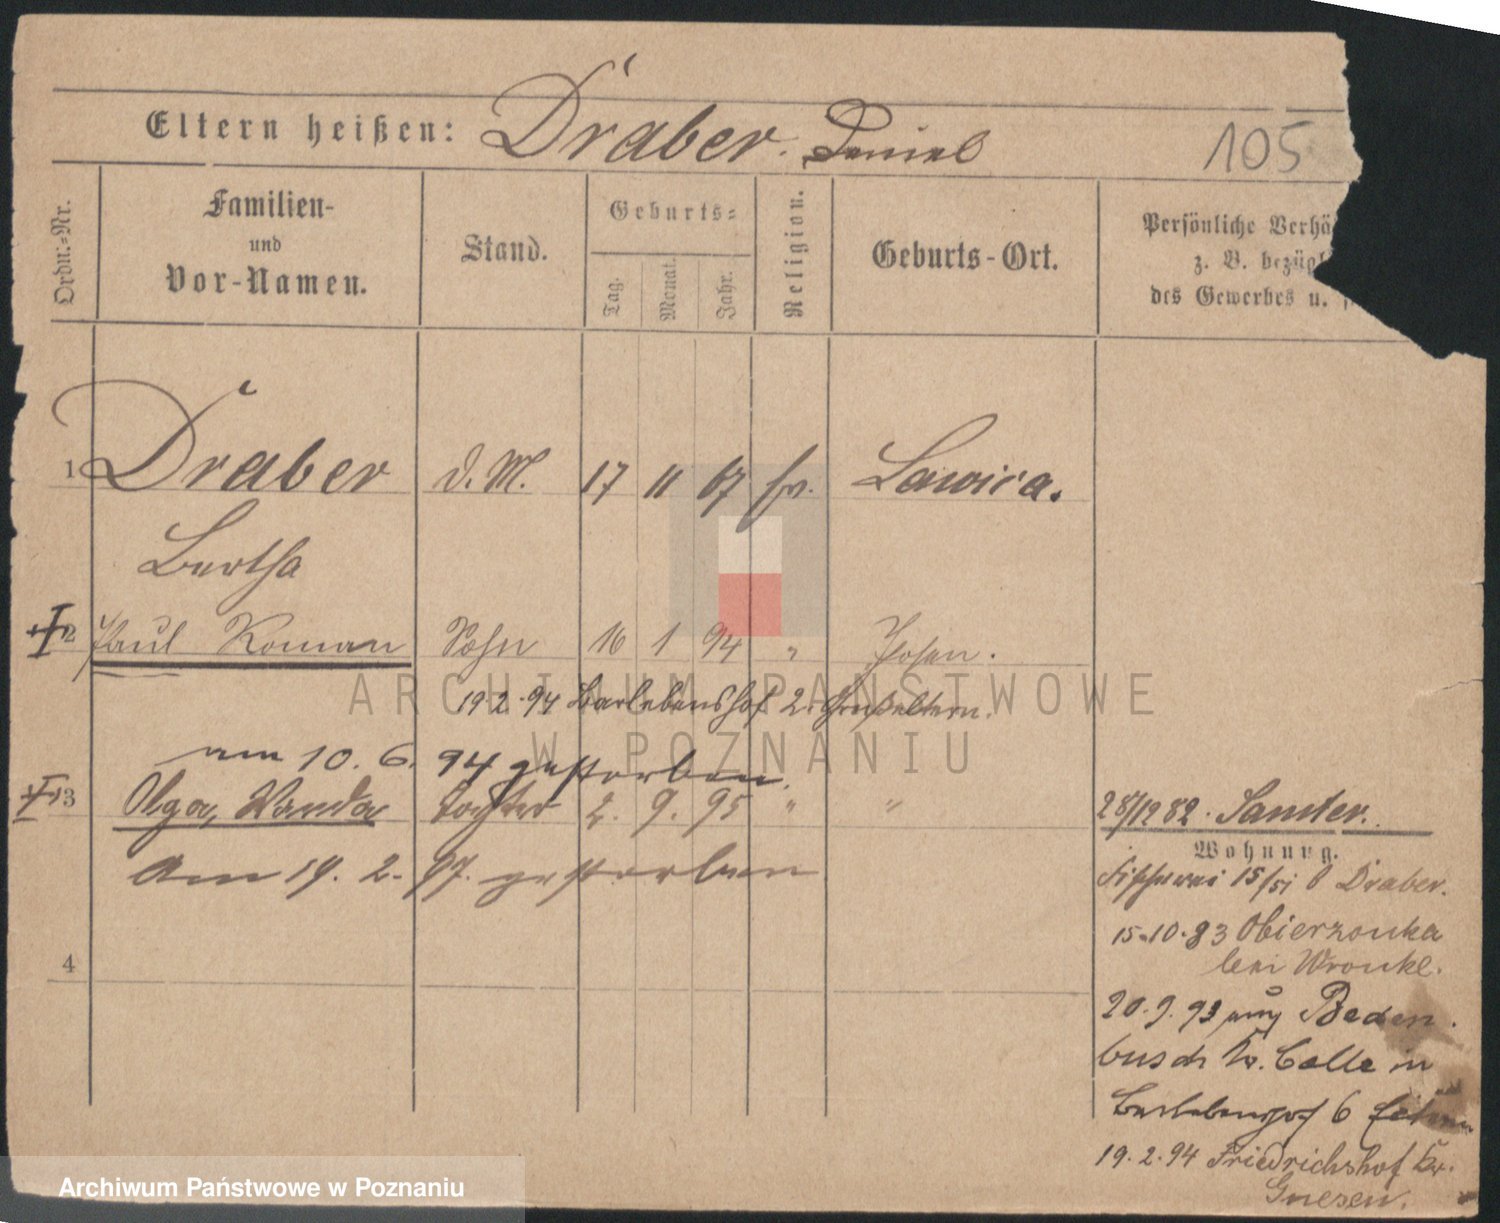 Eltern heißen: Draber. Daniel
105
Ordn.-Nr.
Familien-
und
Vor-Namen.
Stand.
Geburts-
Tag.
Monat.
Jahr.
Religion.
Geburts-Ort.
Persönliche Verhä
z. B. bezügl
des Gewerbes u.
1 Draber d. M. 17 11 67 ev. Lawica.
Bertha
2 Paul Roman Sohn 16 1 94 " Posen.
19.2.94 Barlebenshof z. Großeltern.
am 10. 6. 94 gestorben.
3 Olga, Wanda Tochter 2. 9. 95 " "
Am 19. 2. 97. gestorben
4
28/12 82. Samter.
Wohnung.
Fischerei 15/51 b Draber.
15.10.83 Obierzonka
bei Wronke.
20.9.93 aus Beden
busch Kr. Celle in
Barlebenshof b Eltern
19.2.94 Friedrichshof Kr.
Gnesen.
ARCHIWUM PAŃSTWOWE
W POZNANIU
Archiwum Państwowe w Poznaniu